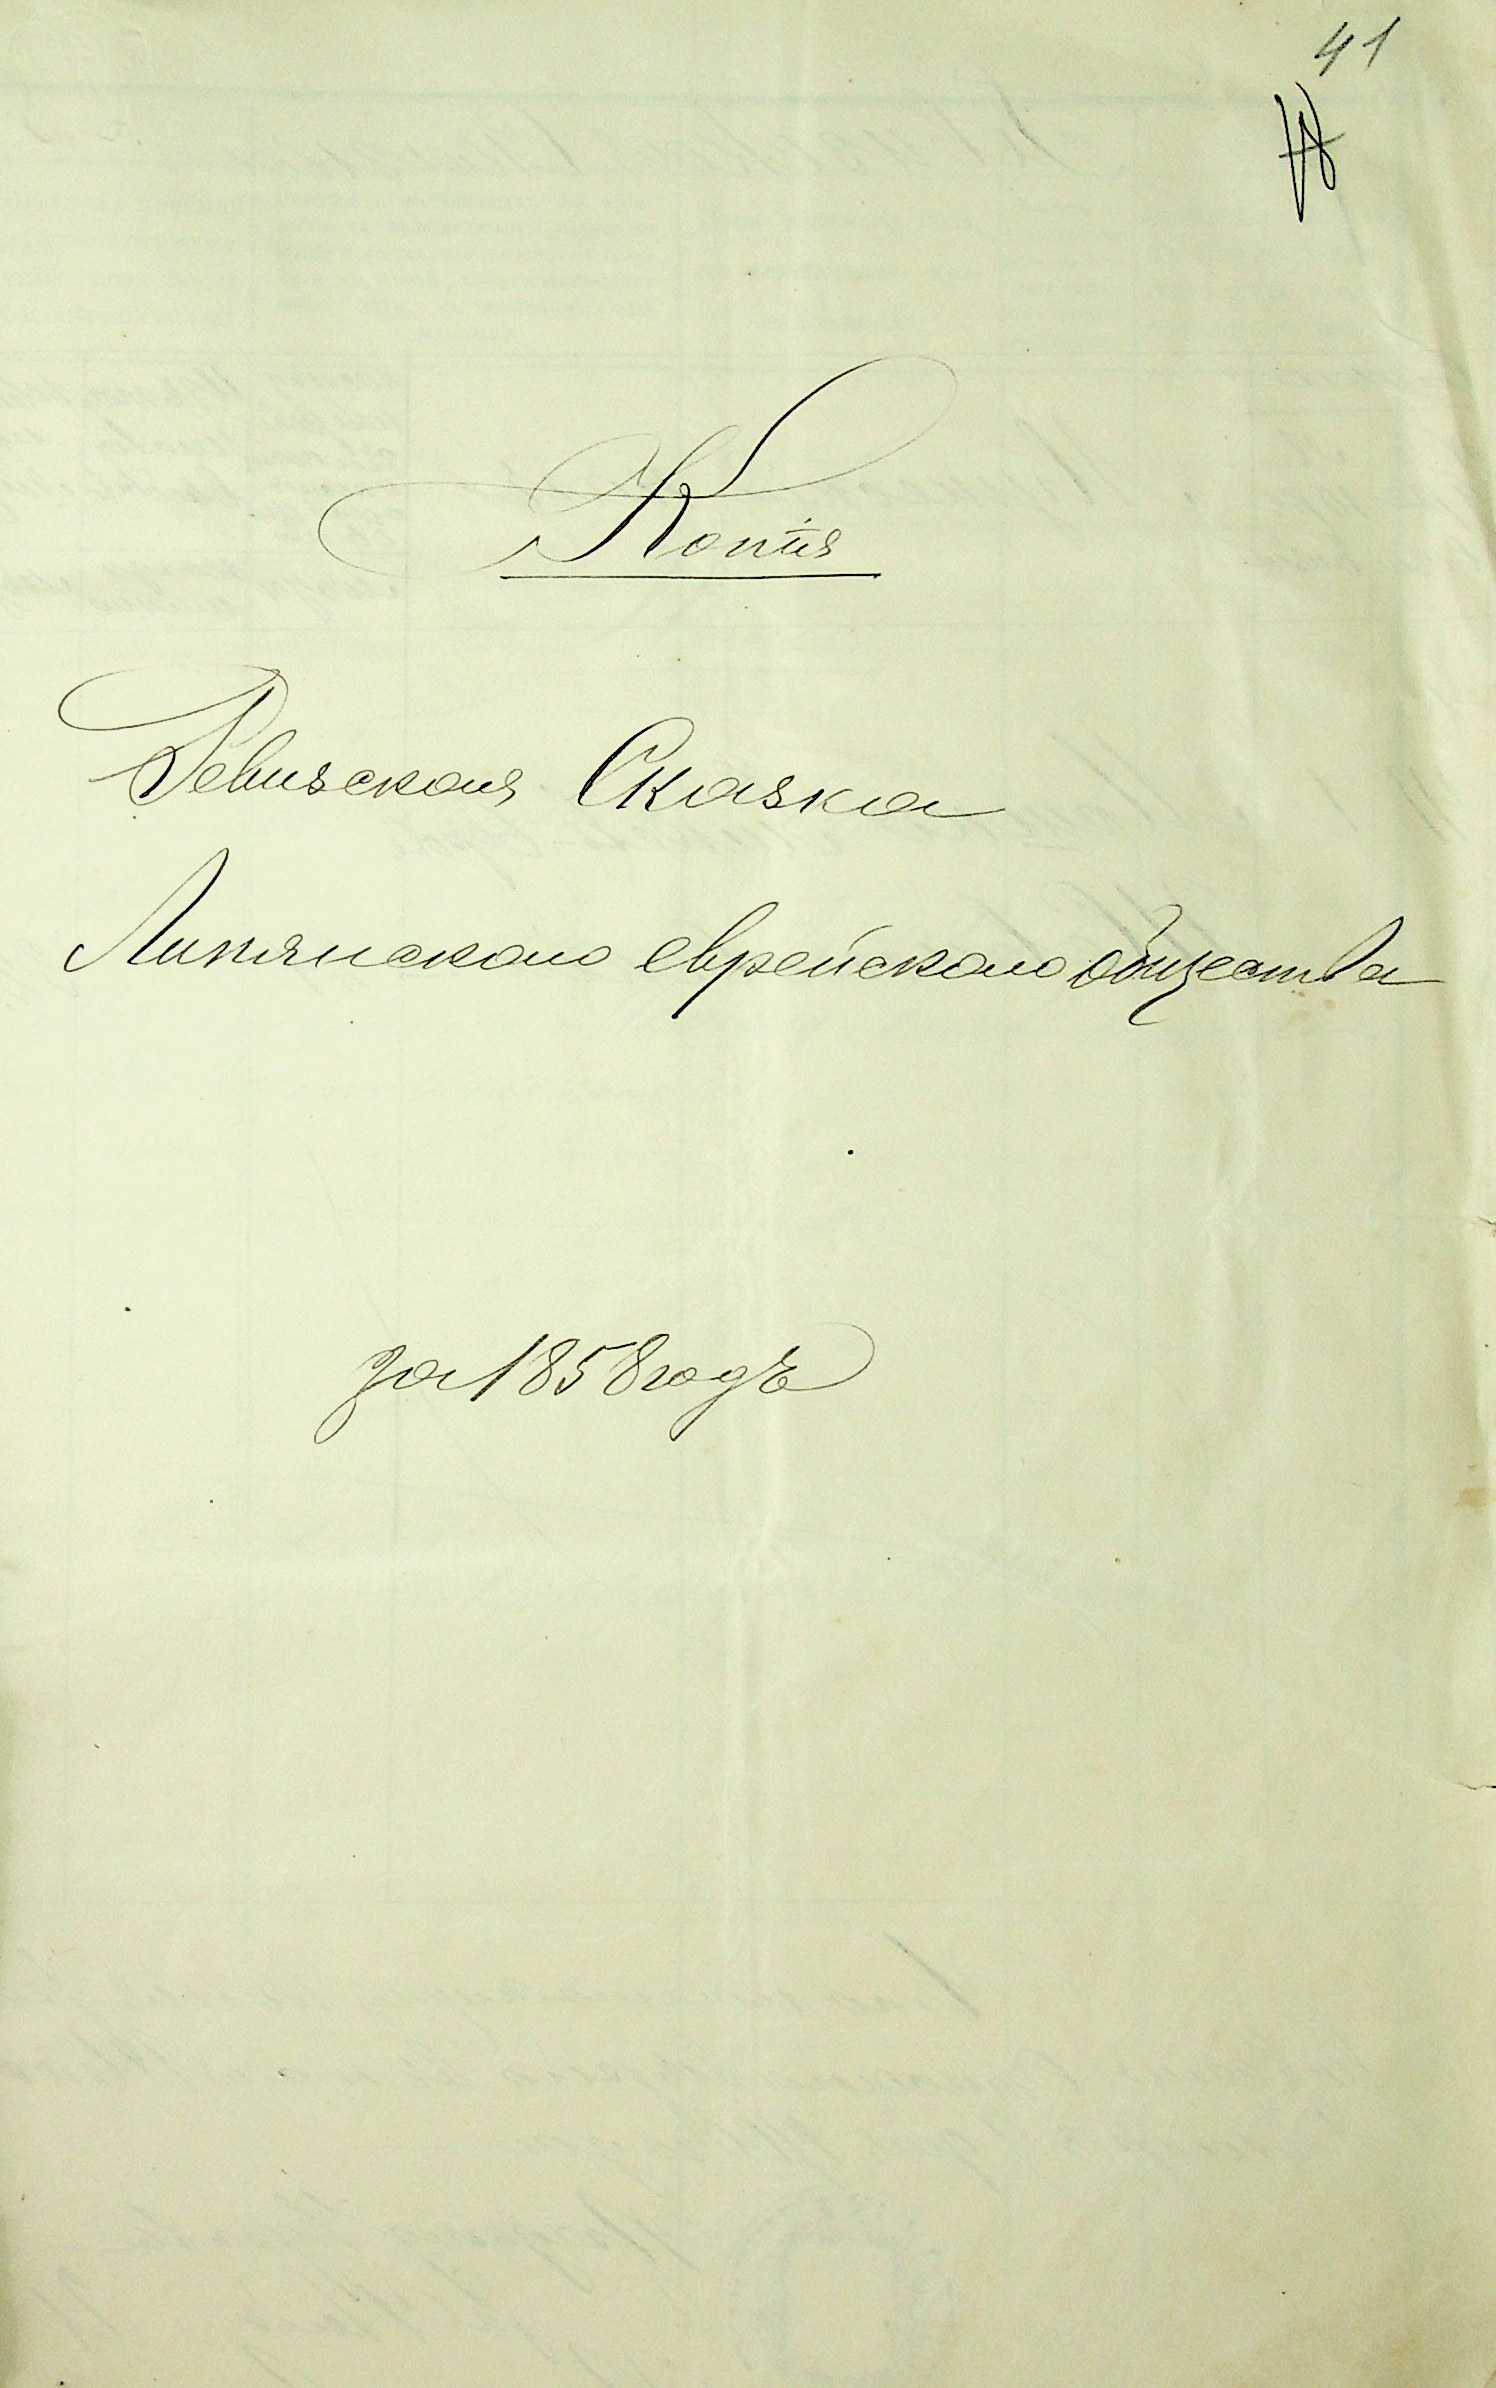 41
Копія
Ревизская Сказка
Липянскаго еврейскаго общества
за 1858 годъ